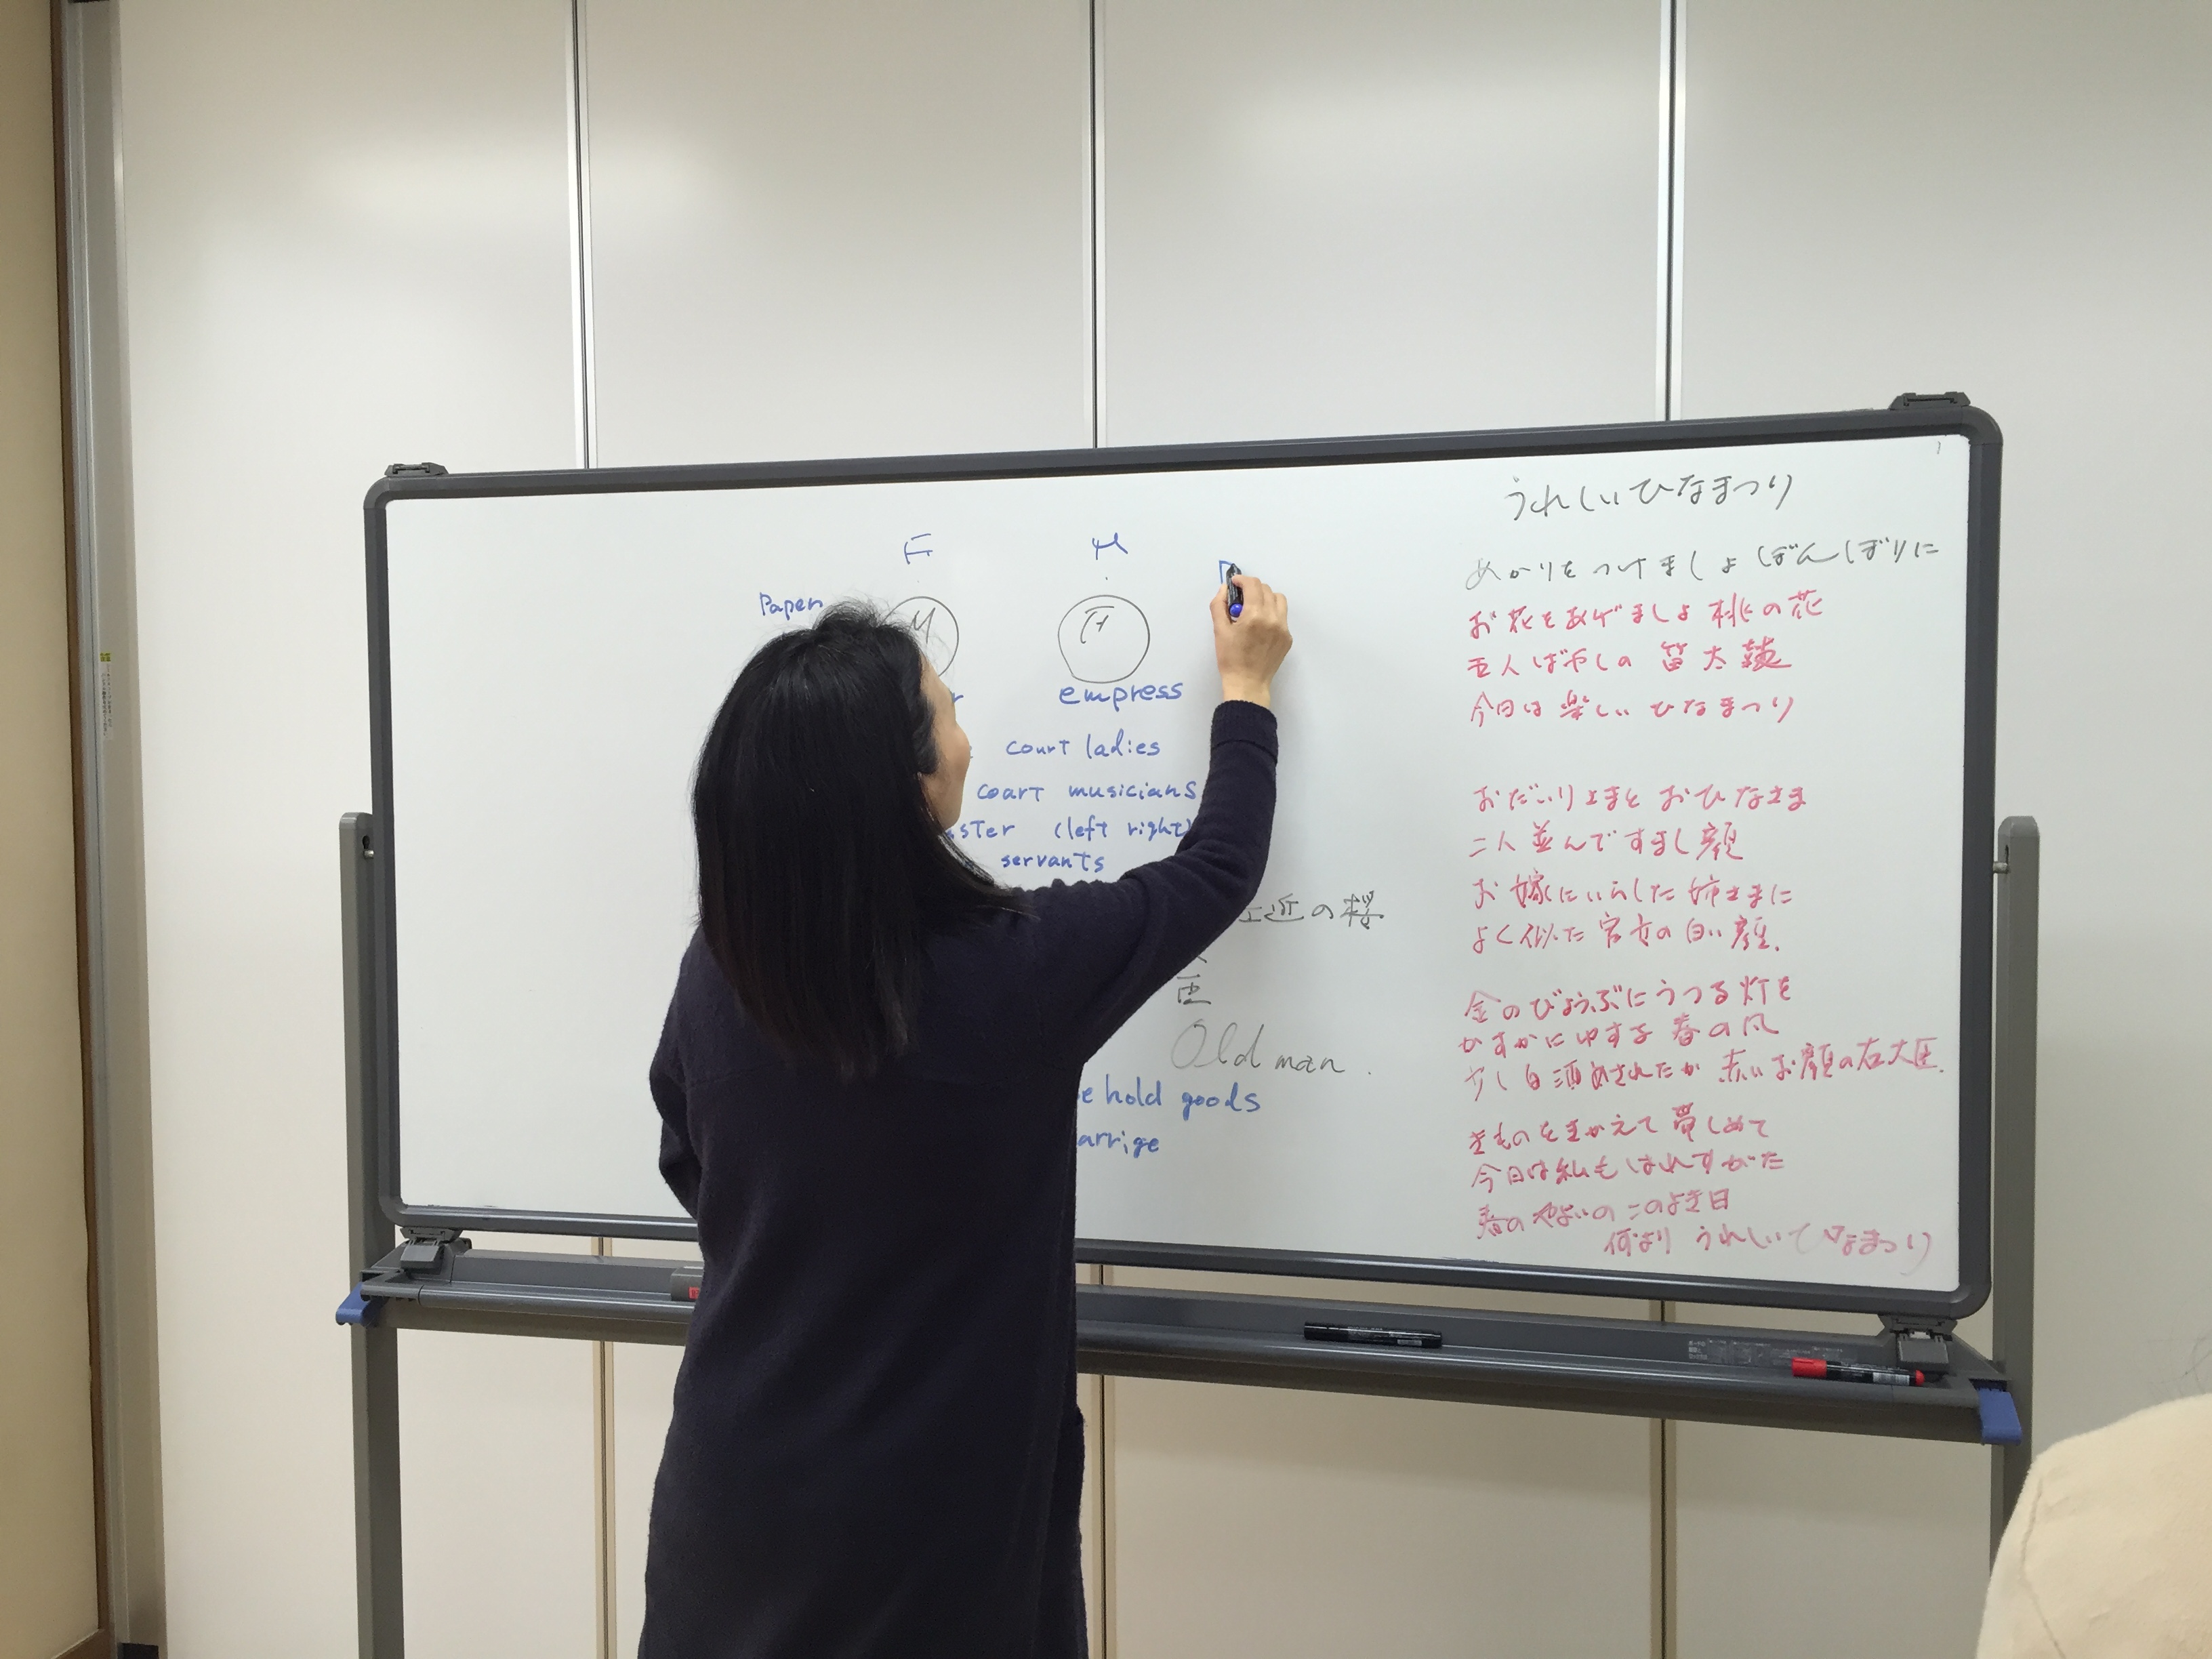 F M
Paper
M F
empress
court ladies
coart musicians
ster (left right)
servants
近の桜
臣
Old man.
e hold goods
arrige
うれしいひなまつり
あかりをつけましょ ぼんぼりに
お花をあげましょ 桃の花
五人ばやしの 笛太鼓
今日は楽しい ひなまつり
おだいりさまと おひなさま
二人並んですまし顔
お嫁にいらした 姉さまに
よく似た官女の白い顔.
金のびょうぶにうつる灯を
かすかにゆする 春の風
少し白酒めされたか 赤いお顔の右大臣.
きものをきかえて 帯しめて
今日は私も はれすがた
春のやよいの このよき日
何より うれしい ひなまつり